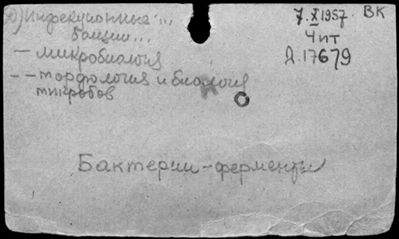 инфекционные...
7.X 1957. ВК
4 ит
Д. 17679
— микробиология
— — морфология и биология
микробов
Бактерии – ферменты